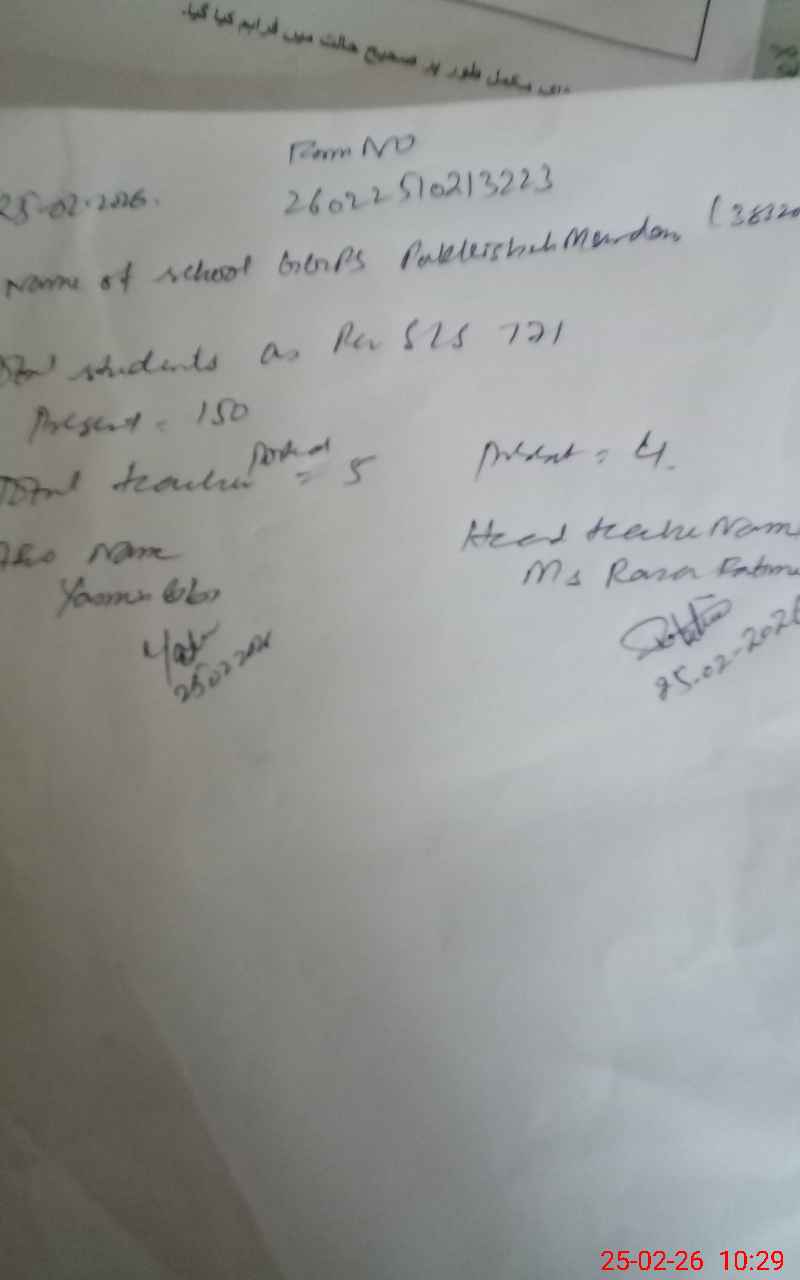 مکمل طور پر صحیح حالت میں فراہم کیا گیا۔
Form NO
25-02-2026.
26022510213223
Name of school GGPS Mardan (38320
Total students as Per SIS 171
Present = 150
Total teacher Posted = 5 Present = 4.
Name Head teacher Name
Yasmin Bibi Ms Rana Fatma
25 02 2026
25-02-2026
25-02-26 10:29